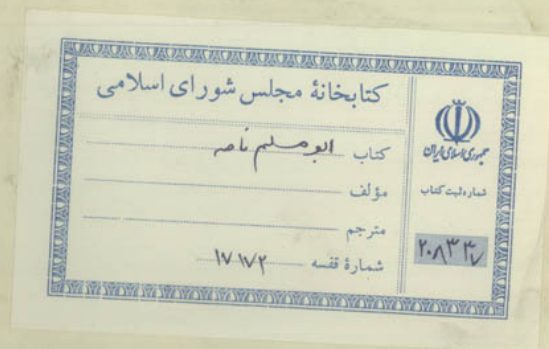 کتابخانهٔ مجلس شورای اسلامی
کتاب ابومسلم نامه
مؤلف
مترجم
شمارهٔ قفسه ۱۷۱۷۲
جمهوری اسلامی ایران
شماره ثبت کتاب
۲۰۸۳۳۷